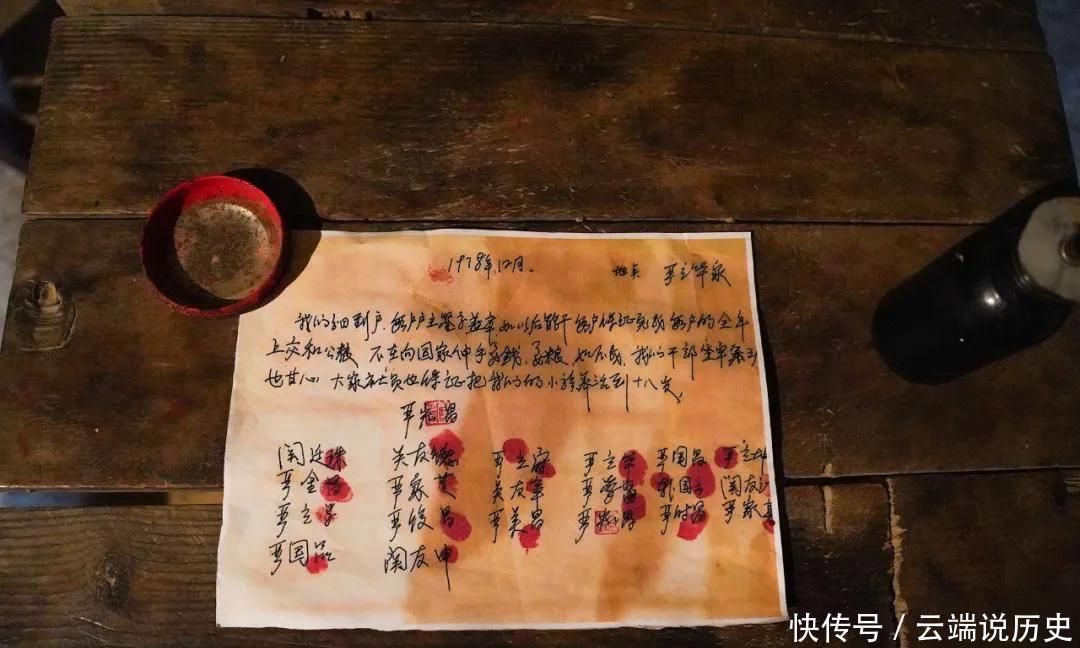 1978年12月. 地点 严立华家
我们分田到户,每户户主签字盖章,如以后能干,每户保证完成每户的全年
上交和公粮 不在向国家伸手要钱、要粮,如不成,我们干部坐牢杀头
也甘心,大家社员也保证把我们的小孩养活到十八岁,
严宏昌
关廷珠 关友德 严立符 严立华 严国昌 严立坤
严金昌 严家芝 关友章 严学昌 韩国云 关友江
严立学 严俊昌 严美昌 严宏昌 严付昌 严家其
严国品 关友申
快传号 / 云端说历史